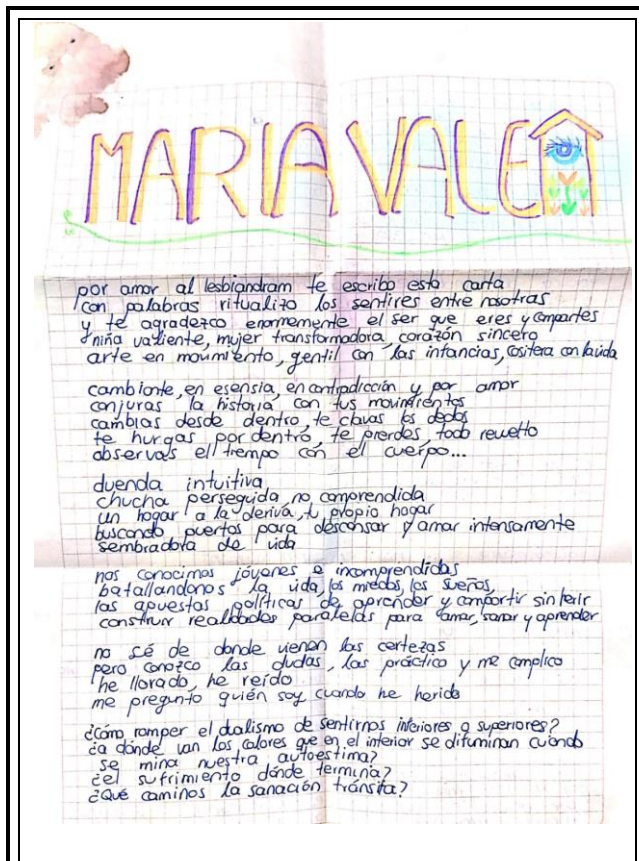 MARIA VALE
por amor al lesbiandram te escribo esta carta
con palabras ritualizo los sentires entre nosotras
y te agradezco enormemente el ser que eres y compartes
niña valiente, mujer transformadora, corazón sincero
arte en movimiento, gentil con las infancias, cositera con la vida
cambiante, en esensia, en contradicción y por amor
conjuras la historia con tus movimientos
cambias desde dentro, te clavas los dedos
te hurgas por dentro, te pierdes, todo revuelto
observas el tiempo con el cuerpo...
duenda intuitiva
chucha perseguida, no comprendida
un hogar a la deriva, tu propio hogar
buscando puertos para descansar y amar intensamente
sembradora de vida
nos conocimos jóvenes e incomprendidas
batallandonos la vida, los miedos, los sueños,
las apuestas políticas de aprender y compartir sin herir
construir realidades paralelas para amar, sanar y aprender
no sé de donde vienen las certezas
pero conozco las dudas, las práctico y me complico
he llorado, he reído
me pregunto quién soy cuando he herido
¿cómo romper el dualismo de sentirnos inferiores o superiores?
¿a dónde van los colores que en el interior se difuminan cuando
se mina nuestra autoestima?
¿el sufrimiento dónde termina?
¿Qué caminos la sanación tránsita?